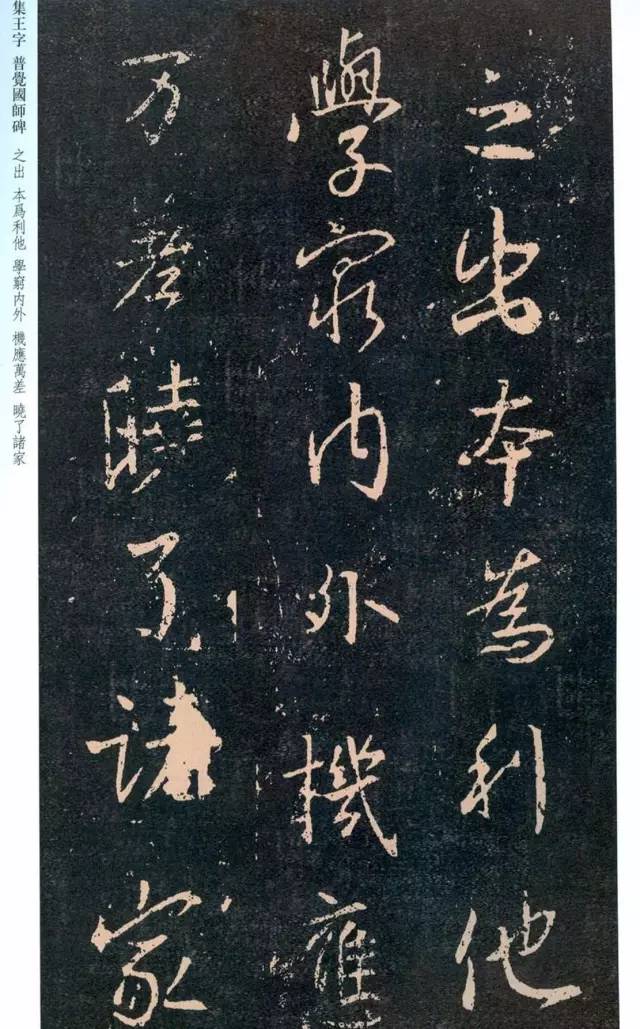 之出本為利他
學窮内外機應
万差曉了諸家
集王字 普覺國師碑 之出 本爲利他 學窮内外 機應萬差 曉了諸家